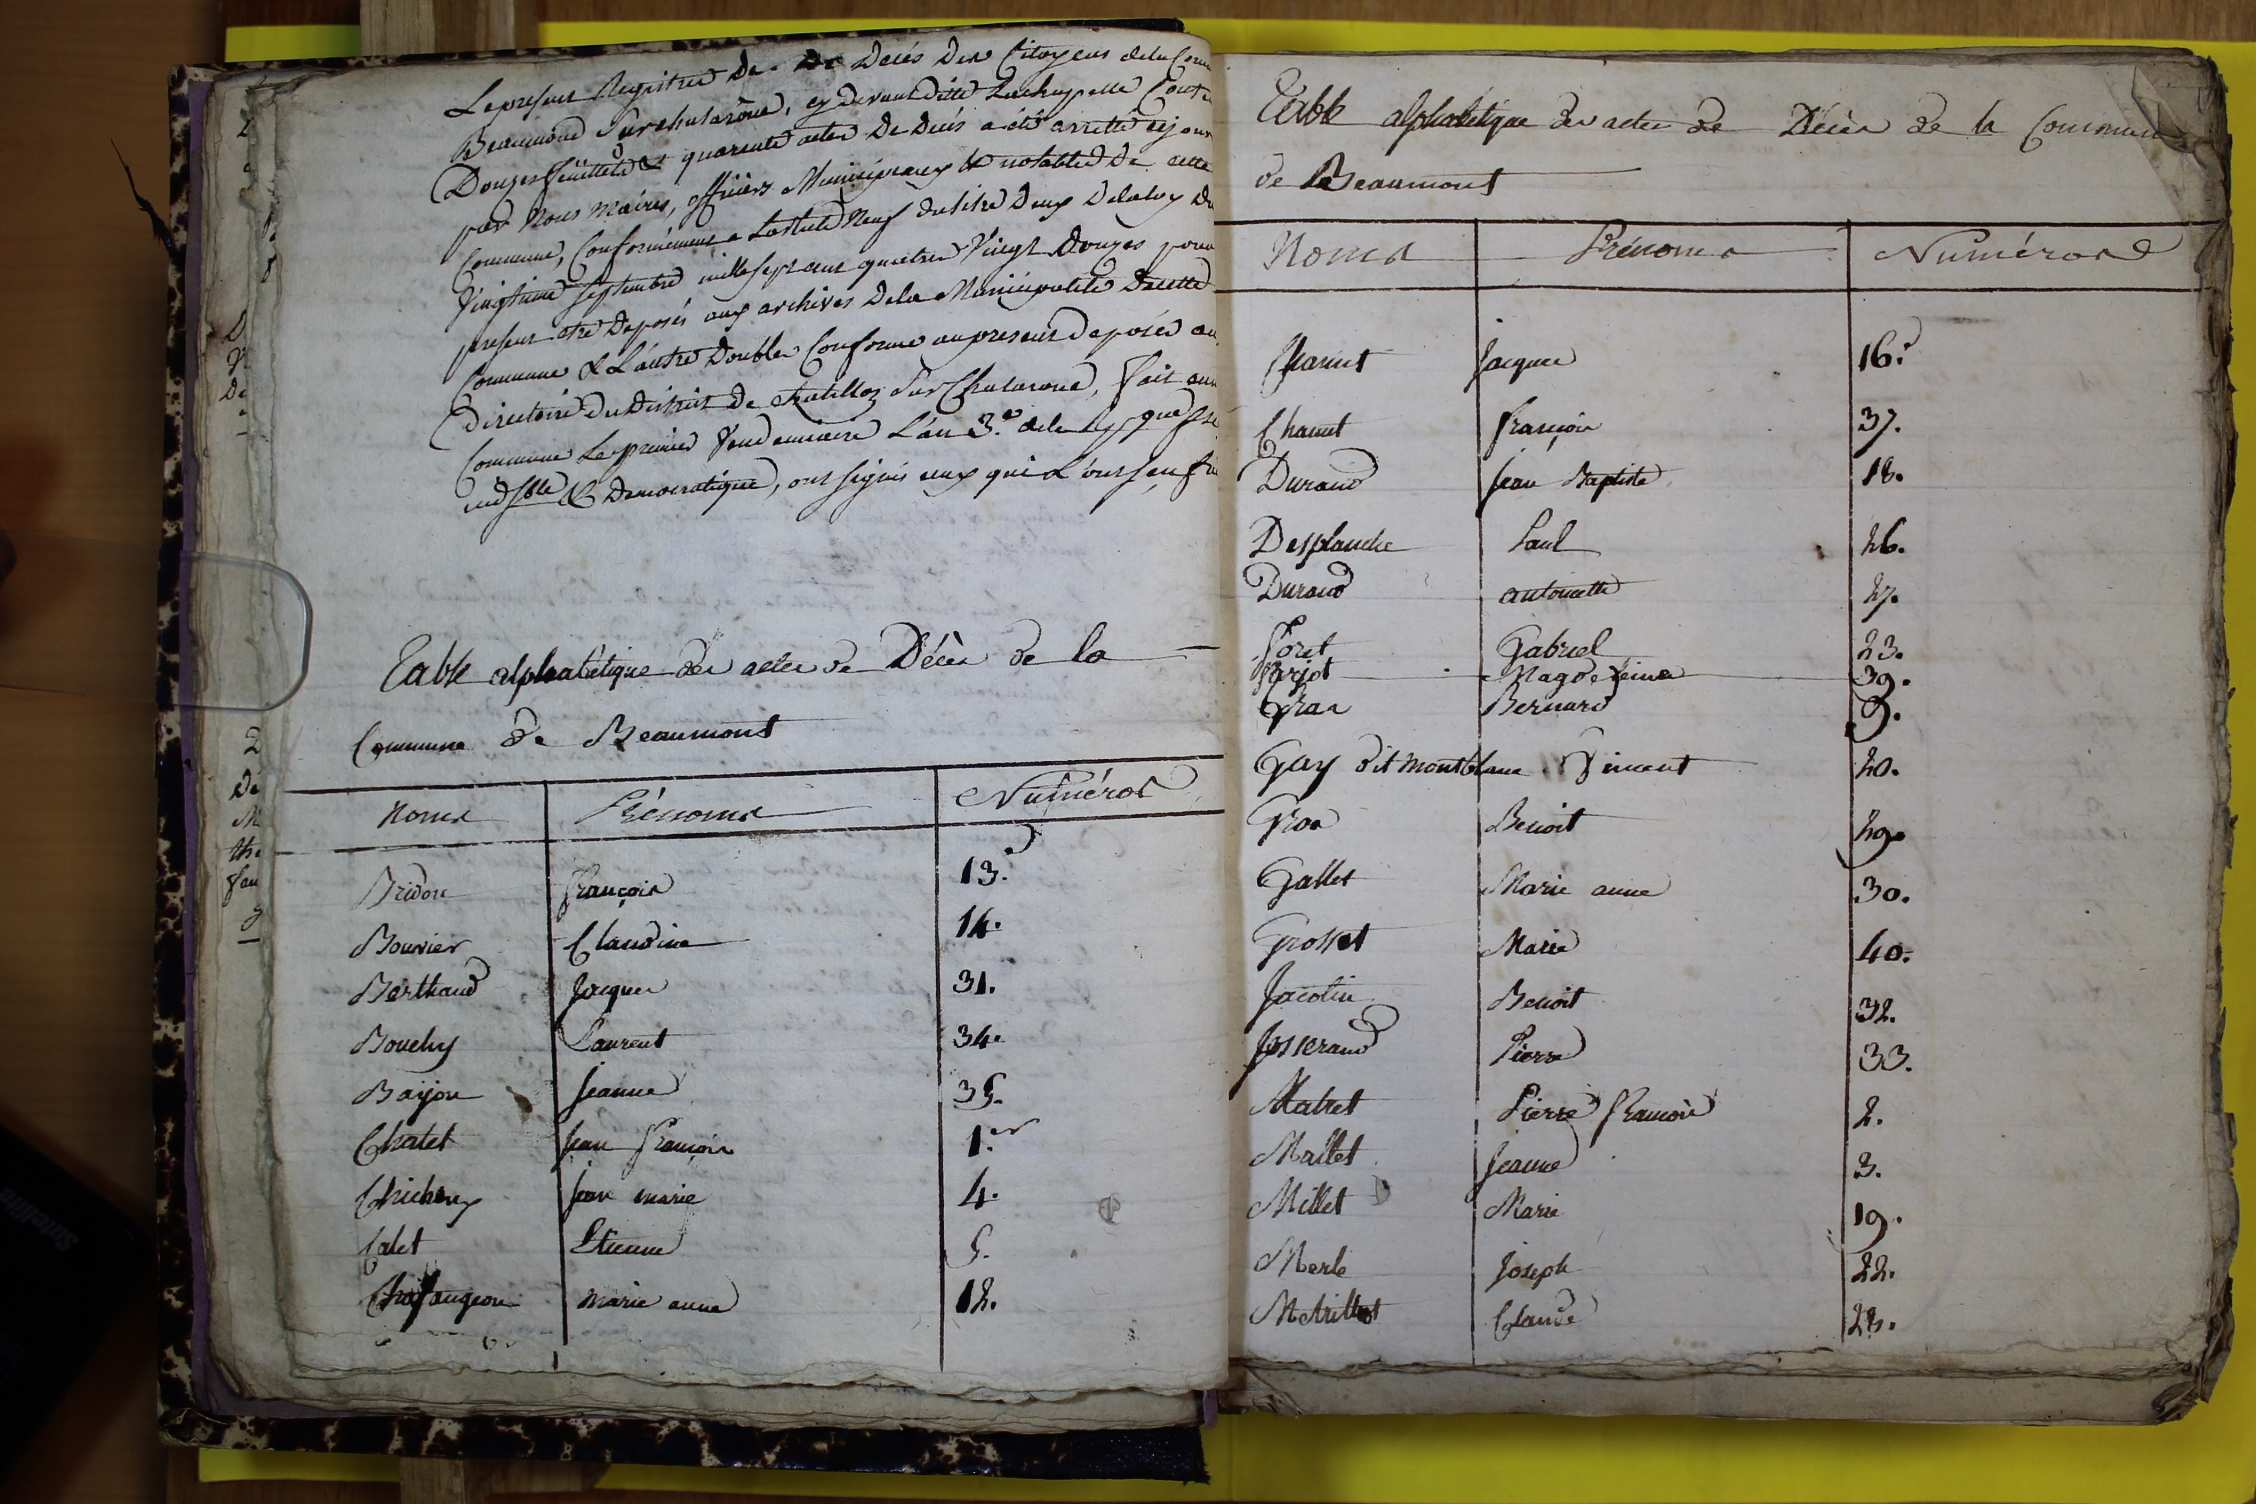 Le present Registre de Decés des Citoyens de la
Beaumond Sur chalarône, cy devant ditte Lachappelle
Douzes feüillets & quarente actes de Deces a été arretté
par Nous Maires, officiers Municipeaux & notables de cette
Commune, Conformément a L'article Neuf du titre Deux De la loy du
Vingtieme Septembre mille sept cent quatre Vingt Douzes pour
present etre Deposés aux archives de la Municipalité De cette
Commune & L'autre Double Conforme au present deposés au
Directoire du District de Chatillon Sur Chalarone, fait
Commune Le premier Vendemiaire L'an 3.e de
& Democratique, ont signés ceux qui L'ont
Table alphabétique des actes de Décès de la
Commune de Beaumont
Noms Prénoms Numéros
Bridon françois 13.
Bouvier Claudine 14.
Berthaud Jacques 31.
Bouchy Laurent 34.
Baijon Jeanne 35.
Chatet Jean françois 1.er
Jean marie 4.
Calet Etienne 5.
marie anne 12.
Table alphabétique des actes de Décès de la Commune
de Beaumont
Noms Prénoms Numéros
Jacques 16.
françois 37.
Durand Jean Baptiste 18.
Desplanche Paul 26.
Durand antoinette 27.
Foret Gabriel 23.
Farjot Magdeleine 39.
Gras Bernard 9.
Gay dit montblanc Vincent 20.
Gros Benoit 29.
Gallet Marie anne 30.
Grosset Marie 40.
Jacolin Benoit 32.
Josserand Pierre 33.
Matret Pierre François 2.
Mallet Jeanne 3.
Millet Marie 19.
Merle Joseph 22.
Claude 28.